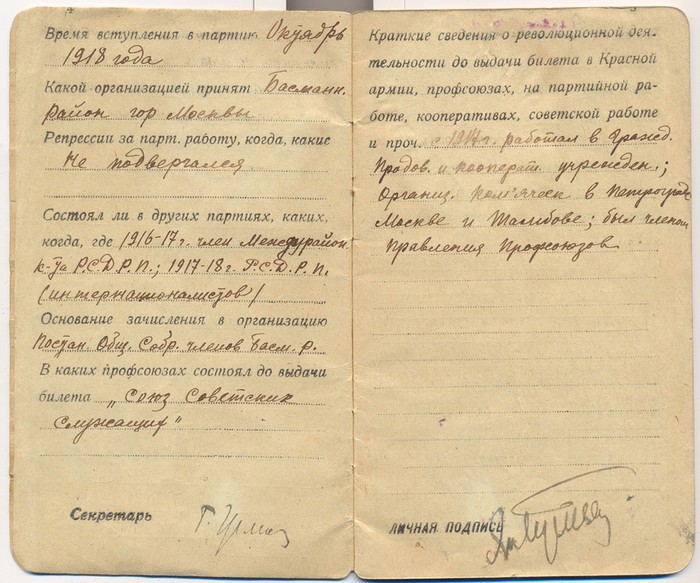 Время вступления в партию Октябрь
1918 года
Какой организацией принят Басманн.
район гор Москвы
Репрессии за парт. работу, когда, какие
Не подвергался
Состоял ли в других партиях, каких,
когда, где 1916-17 г. член Междурайон.
к-та Р.С.Д.Р.П.; 1917-18 г. Р.С.Д.Р.П.
(интернационалистов)
Основание зачисления в организацию
Постан. Общ. Собр. членов Басм. р.
В каких профсоюзах состоял до выдачи
билета „Союз Советских
служащих"
Секретарь
Краткие сведения о революционной дея-
тельности до выдачи билета в Красной
армии, профсоюзах, на партийной ра-
боте, кооперативах, советской работе
и проч. с 1917 г. работал в Гражд.
Продов. и кооперат. учрежден.;
Организ. ком'ячеек в Петрограде
Москве и Тамбове; был членом
Правления Профсоюзов
ЛИЧНАЯ ПОДПИСЬ